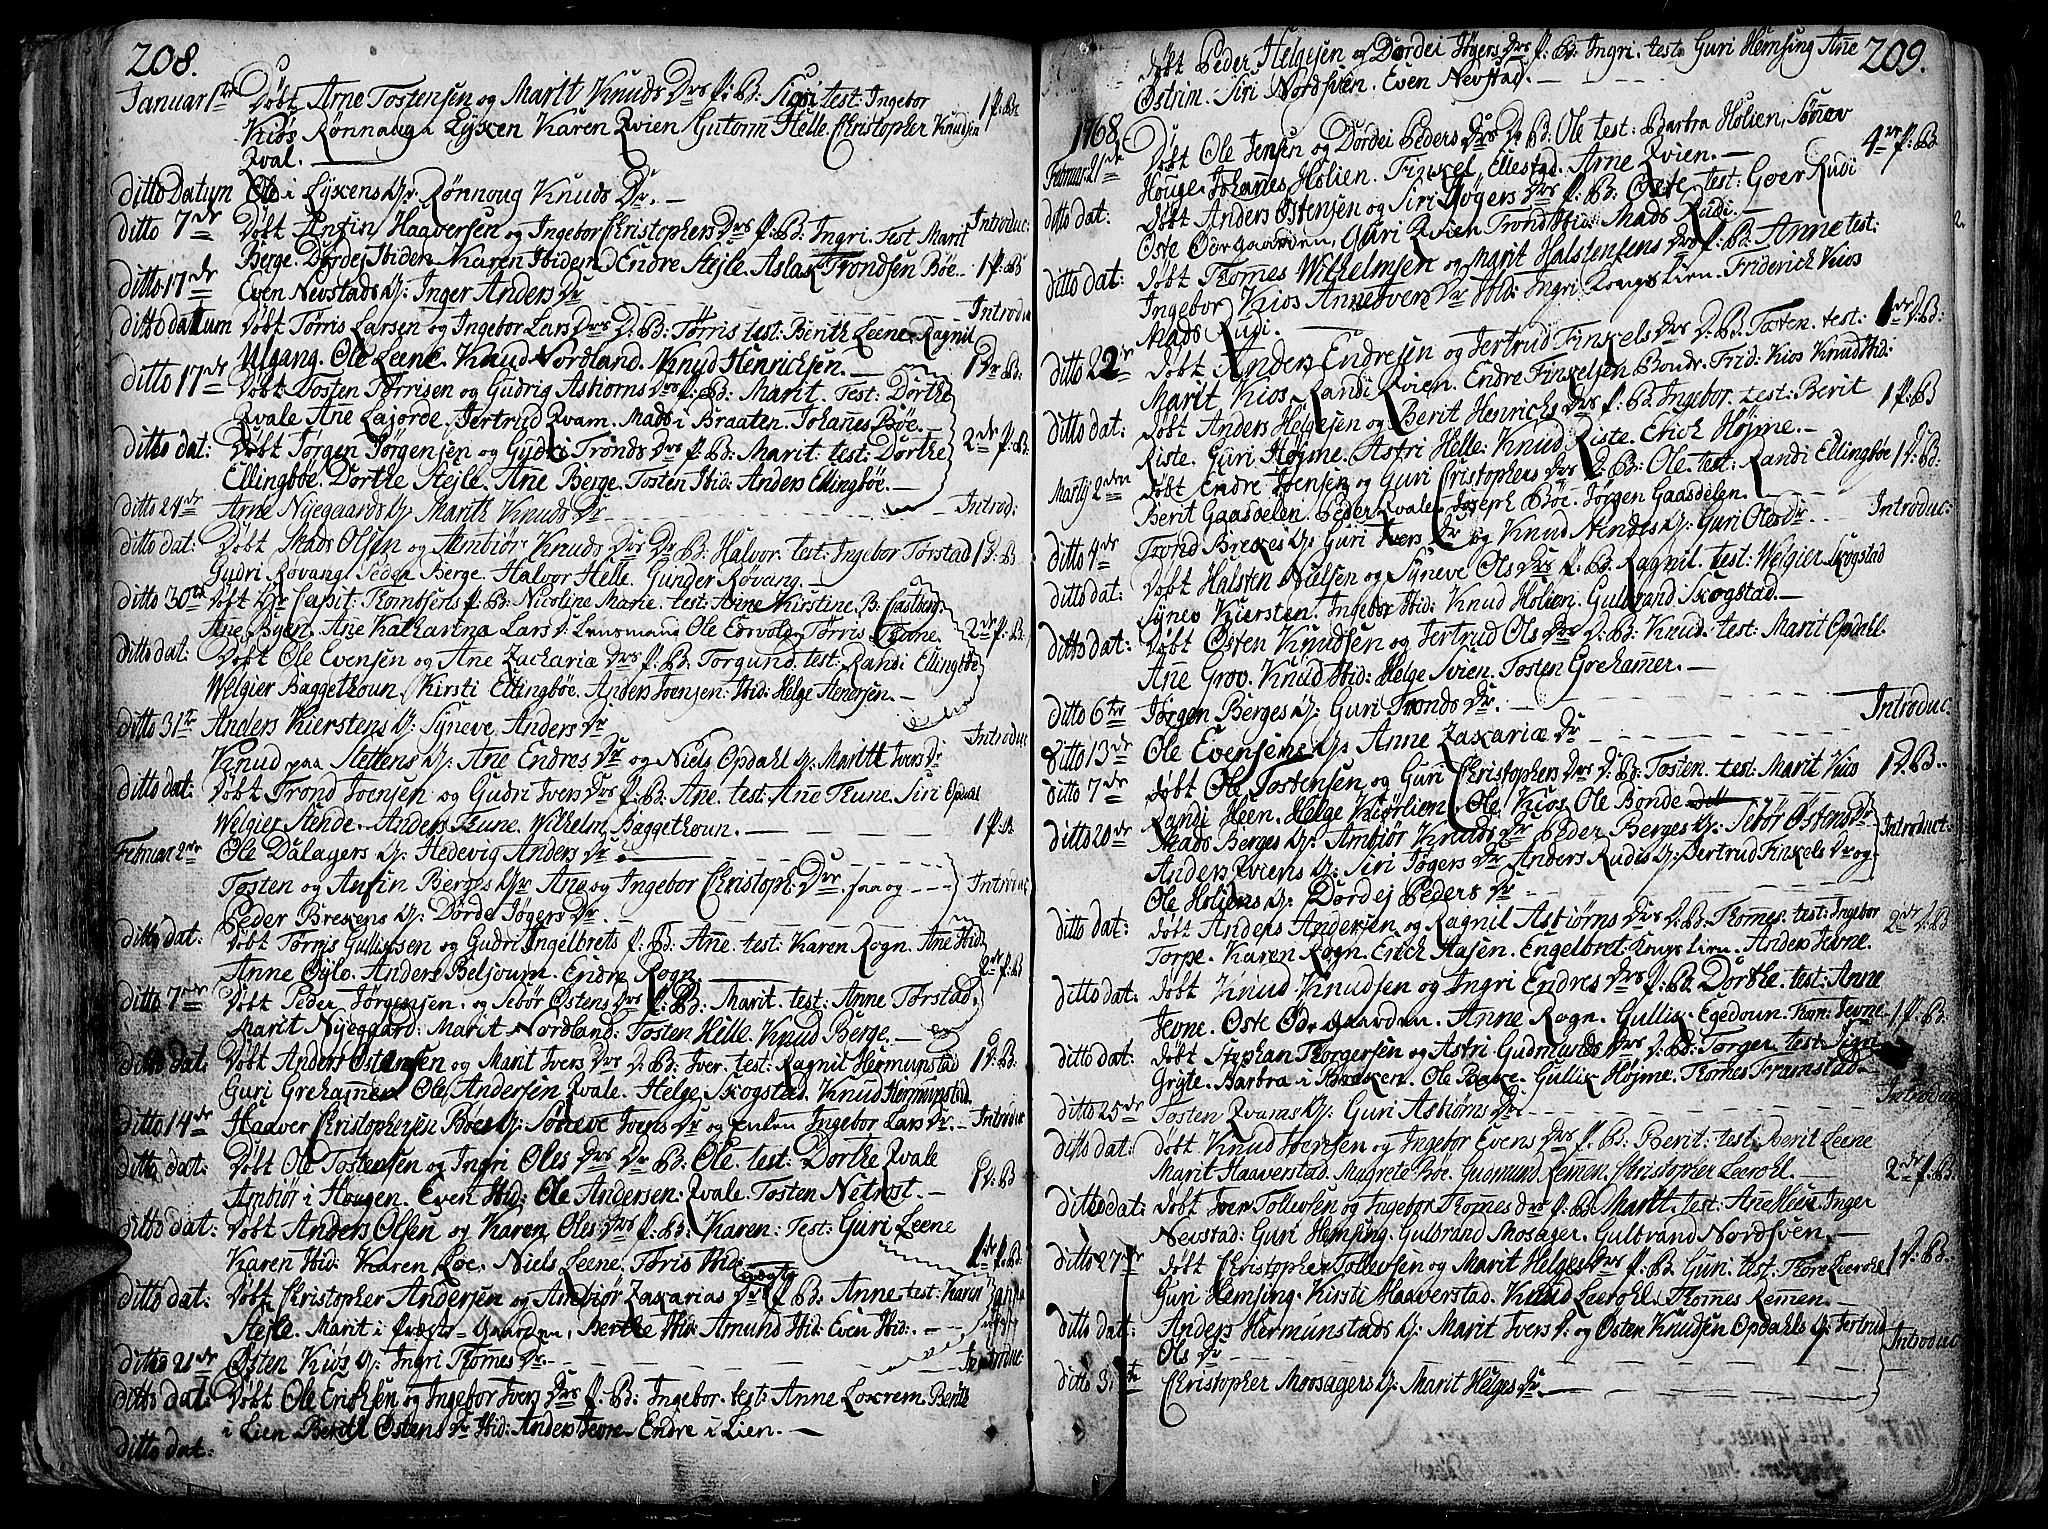 208.
Januar 1ste Døbt Arne Tostensen og Maritt Knuds Drs P: B: Siri test: Ingebor 1 P: B:
Kiös Rønnaug i Lÿken Karen Qvien Gutorm Helle Christopher Knudsen
Qvale.
ditto Datum Ole i Lÿkens K: Rønnoug Knuds Dr.
ditto 7de Døbt Anfin Haaversen og Ingebor Christophers Drs P: B: Ingri. Test Marit Introduc:
Berge. Dordei Ibiden Karen Ibidem Endre Stejle. Aslak Trondsen Böe. 1 P: B:
ditto 17de Even Nevstads K: Inger Anders Dr Introdu
ditto datum Døbt Tørris Larsen og Ingebor Lars Drs D: B: Tørris test: Berith Leene Ragnil
Ulgang. Ole Leene. Knud Nordland. Knud Henrichsen. 1 D: B:
ditto 17de Døbt Tosten Tørrisen og Gudrig Astiorns Drs P: B: Marit. Test: Dorthe
Qvale Ane Lajorde. Jertrud Qvam. Mads i Braaten. Johanes Böe.
ditto dat: Døbt Jørgen Jørgensen og Gudri Tronds Drs P: B: Marit: test: Dorthe 2de P: B:
Ellingböe. Dorthe Stejle. Ane Berge. Tosten Ibid: Anders Ellingböe.
ditto 24de Arne Nÿegaards K: Marith Knuds Dr Introd:
ditto dat: Døbt Mads Olsen og Ambiör Knuds Drs D: B: Halvor. test: Ingebor Tørstad 1 D: B
Gudri Røvang. Peder Berge. Halvor Helle. Gunder Røvang.
ditto 30te Døbt Hr Capit: Thomesens P: B: Nicoline Marie. test: Anne Kirstine. B:
Ane Byen. Ane Katharina Lars D: Lensmand Ole Edvold. Tørris Thune. 2de P: B:
ditto dat: Døbt Ole Evensen og Ane Zachariæ Drs P: B: Torgund. test: Randi Ellingböe
Welgier Baggethoun. Kirsti Ellingböe. Anders Joensen: Ibid: Helge Stendsen.
ditto 31te Anders Kierstens K: Syneve Anders Dr Introduc
Knud paa Slettens K: Ane Endres Dr og Niels Opdahl K: Maritt Ivers Dr
ditto dat: Døbt Trond Joensen og Gudri Ivers Drs P: B: Ane. test: Ane Thune. Siri Opdal
Welgier Stende. Anders Thune. Wilhelm Baggethoun. 1 P: B
Februar 2den Ole Dalagers K: Hedevig Anders Dr.
Tosten og Anfin Berges K: Ane og Ingebor Christoph: Drs. saa og Introduc
Peder Brekens K: Dorde Jøgers Dr.
ditto dat: Døbt Torris Gulliksen og Gudri Ingelbrets P: B: Ane. test: Karen Rogn. Ane Ibid
Anne Oÿlo. Anders Belsjoum. Endre Rogn. 2de P: B
ditto 7de Døbt Peder Jørgensen. og Sebör Ostens Drs P: B: Marit. test: Anne Tørstad.
Marit Nÿegaard: Marit Nordland: Tosten Helle. Knud Berge.
ditto dat Døbt Anders Ostensen og Marit Ivers Drs D: B: Iver. test: Ragnil Hermunstad 1 D: B:
Guri Grehamer. Ole Andersen Qvale. Helge Skogstad. Knud Hermunstad.
ditto 14de Haaver Christophersen Böes K: Söneve Ivers Dr og enken Ingebor Lars Dr. Introduc
ditto dat: Døbt Ole Tostensen og Ingri Oles Drs D: B: Ole. test: Dorthe Qvale 1 D: B
Ambiör i Hougen. Even Ibid: Ole Andersen: Qvale. Tosten Netrost.
ditto dat: Døbt Anders Olsen og Karen Oles Drs P: B: Karen: Test: Guri Leene
Karen Ibid: Karen Loe. Niels Leene. Toris Ibid: 1 P: B:
ditto dat: Døbt Christopher Andersen og Ambiör Zakarias Drs P: B: Anne test: Karen
Stejle. Marit i Præste-Gaarden. Berthe Ibid: Amund Ibid: Even Ibid:
ditto 21de Østen Kiös K: Ingri Thomes Dr. Introduc:
ditto dat: Døbt Ole Erichsen og Ingebor Ivers Drs P: B: Ingebor. test: Anne Loxrem Berit
i Lien Berith Ostens Dr Ibid: Anders Jevne Endre i Lien.
ditto dat:
Døbt Peder Helgesen og Dordei Jögers Drs P: B: Ingri. test: Guri Hemsing Ane 209.
Ostrim. Siri Nordsveen. Even Nevstad.
1768
Februar 21de Døbt Ole Jensen og Dordei Peders Drs D: B: Ole test: Barbra Holien, Sönev 4de P: B
Houge. Johannes Holien. Finkel Ellestad. Arne Qvien.
ditto dat: Døbt Anders Østensen og Siri Jøgers Drs P: B: Oste test: Goer Rudi
Oste Ödegaarden, Guri Qvien Trond Ibid: Mads Rudi.
ditto dat: Døbt Thomes Wilhelmsen og Marit Halstensens Drs P: B: Anne test:
Ingebor Kios Anne Ivers Dr Ibid: Ingri Kongslien. Friderich Kios
Mads Rudi.
ditto 22de Døbt Anders Endresen og Jertrud Finkels Drs D: B: Tosten. test: 1 D: B:
Marit Kios Randi Qvien. Endre Finkelsen Bonde. Frid: Kios Knud Ibid:
ditto dat: Døbt Anders Helgesen og Berit Henrichs Drs P: B: Ingebor. test: Berit 1 P: B
Riste. Guri Højme. Astri Helle. Knud Riste. Erich Højme.
Martij 2den Døbt Endre Joensen og Guri Christophers Drs D: B: Ole. test: Randi Ellingböe 1 D: B:
Berit Gaasdelen. Peder Qvale. Joseph Böe. Jørgen Gaasdelen.
ditto 4de Trond Brekes K: Guri Ivers Dr og Knud Andes K: Guri Oles Dr. Introduc:
ditto dat: Døbt Halsten Nielsen og Syneve Ols Drs P: B: Ragnil. test: Welgier Skogstad
Synev Kiersten. Ingebor Ibid: Knud Holien. Gulbrand Skogstad.
ditto dat: Døbt Østen Knudsen og Jertrud Ols Drs D: B: Knud. test: Marit Opdahl.
Ane Grov. Knud Ibid: Helge Svien. Tosten Grehamer.
ditto 6te Jørgen Berges K: Guri Tronds Dr. Introduc.
ditto 13de Ole Evensens K: Anne Zakariæ Dr
ditto 7de Døbt Ole Tostensen og Guri Christophers Drs D: B: Tosten. test: Marit Kios 1 D: B.
Randi Heen. Helge Kiörlien. Ole Kios. Ole Bonde
ditto 20de Mads Berges K: Ambiör Knuds Dr Peder Berges K: Sebör Østens Dr Introduct:
Anders Qviens K: Siri Jøgers Dr Anders Rudis K: Jertrud Finkels Dr og
Ole Holiens K: Dordej Peders Dr
ditto dat: Døbt Anders Andersen og Ragnil Astiørns Drs D: B: Thomes. test: Ingebor 2de D: B
Torpe. Karen Rogn. Erich Aasen. Engelbret Kongslien. Anders Jevne.
ditto dat: Døbt Knud Knudsen og Ingri Endres Drs P: B: Dorthe. test: Anne
Jevne. Oste Ödegaarden. Anne Rogn. Gullik Egedoun. Thom: Jevne 1 P: B:
ditto dat: Døbt Stephan Thorgersen og Astri Gudmunds Drs D: B: Torger. test: Sign
Grÿte. Barbra i Brekken. Ole Bakke. Gullik Højme. Thomes Framstad.
ditto 25de Tosten Qvams K: Guri Astiörns Dr. Introduc
ditto dat: Døbt Knud Iversen og Ingebor Evens Drs P: B: Berit: test: Berit Leene
Marit Haaverstad. Magrete Böe. Gudmund Remen. Christopher Leerohl. 2de P: B.
ditto dat: Døbt Iver Tollevsen og Ingebor Thomes Drs P: B: Marit. test: Inger
Nevstad: Guri Hemsing. Gulbrand Mosager. Gulbrand Nordsveen.
ditto 27de Døbt Christopher Tollevsen og Marit Helges Drs P: B: Guri. test. Thore Leerohl 1 P: B:
Guri Hemsing. Kirsti Haaverstad. Knud Leerohl. Thomes Remen.
ditto dat: Anders Hermunstads K: Marit Ivers D: og Østen Knudsen Opdahls K: Jertrud Introduc
Ols Dr
ditto 31te Christopher Moosagers K: Marit Helges Dr.